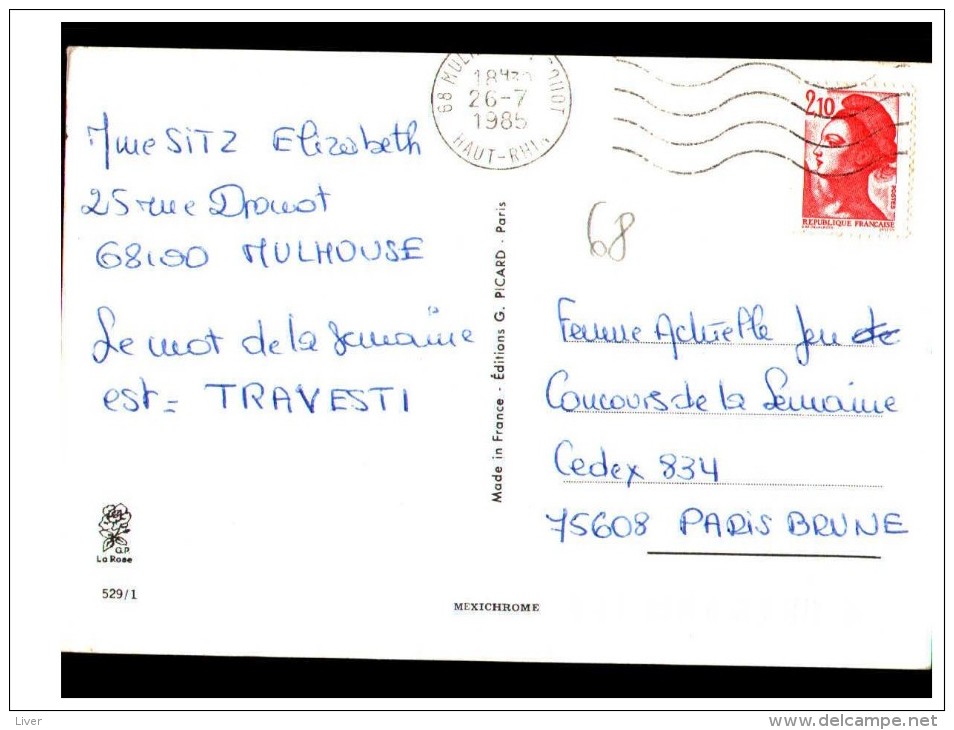 68 MUL
18H30
26-7
1985
HAUT-RHIN
2,10
POSTES
REPUBLIQUE FRANCAISE
Mme SITZ Elizabeth
25 rue Drouot
68100 MULHOUSE
Le mot de la semaine
est = TRAVESTI
68
Made in France - Éditions G. PICARD - Paris
Femme Actuelle Jeu
Concours de la Semaine
Cedex 834
75608 PARIS BRUNE
G.P.
La Rose
529/1
MEXICHROME
Liver
www.delcampe.net